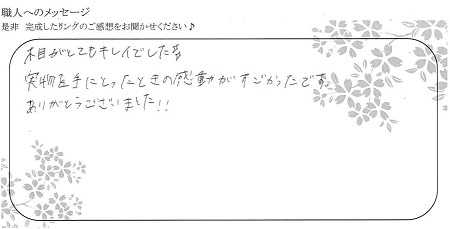 職人へのメッセージ
是非 完成したリングのご感想をお聞かせください♪
木目がとてもキレイでした
実物を手にとったときの感動がすごかったです。
ありがとうございました!!